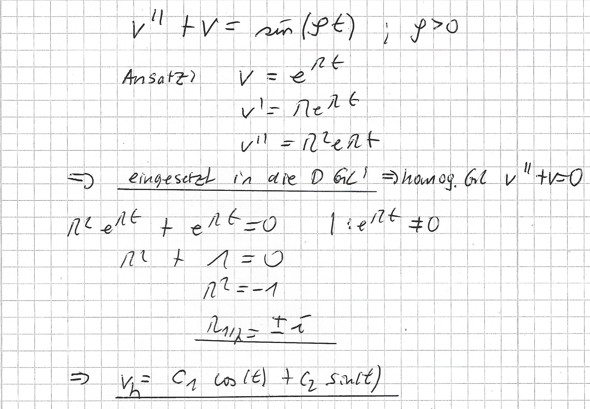 v'' + v = sin(ρt) ; ρ>0
Ansatz: v = e^λt
v' = λe^λt
v'' = λ²e^λt
⇒ eingesetzt in die DGL: ⇒ homog. Gl v''+v=0
λ² e^λt + e^λt = 0 | : e^λt ≠ 0
λ² + 1 = 0
λ² = -1
λ1/2 = ± i
⇒ vh = C1 cos(t) + C2 sin(t)